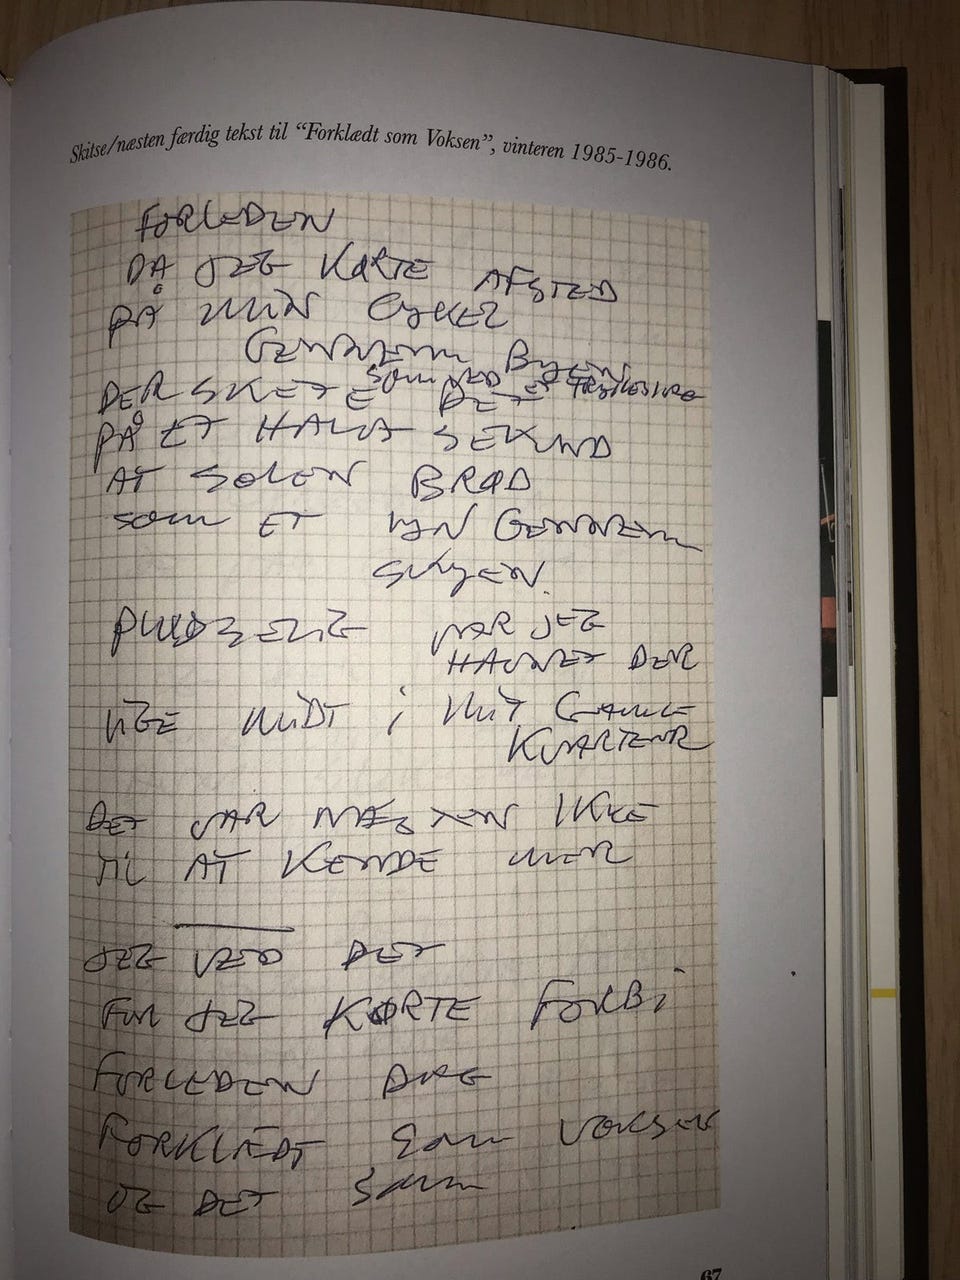 Skitse/næsten færdig tekst til “Forklædt som Voksen”, vinteren 1985-1986.
FORLEDEN
DA JEG KØRTE AFSTED
PÅ MIN CYKEL
GENNEM BYEN
SOM VED ET
DER SKETE DET
PÅ ET HALVT SEKUND
AT SOLEN BRØD
SOM ET LYN GENNEM
SKYEN
PUDSELIG VAR JEG
HAVNET DER
LIGE MIDT i MIT GAMLE
KVARTER
DET VAR NÆSTEN IKKE
TIL AT KENDE MER
JEG VED DET
FOR JEG KØRTE FORBi
FORLEDEN DAG
FORKLÆDT SOM VOKSEN
OG DET SOM
67